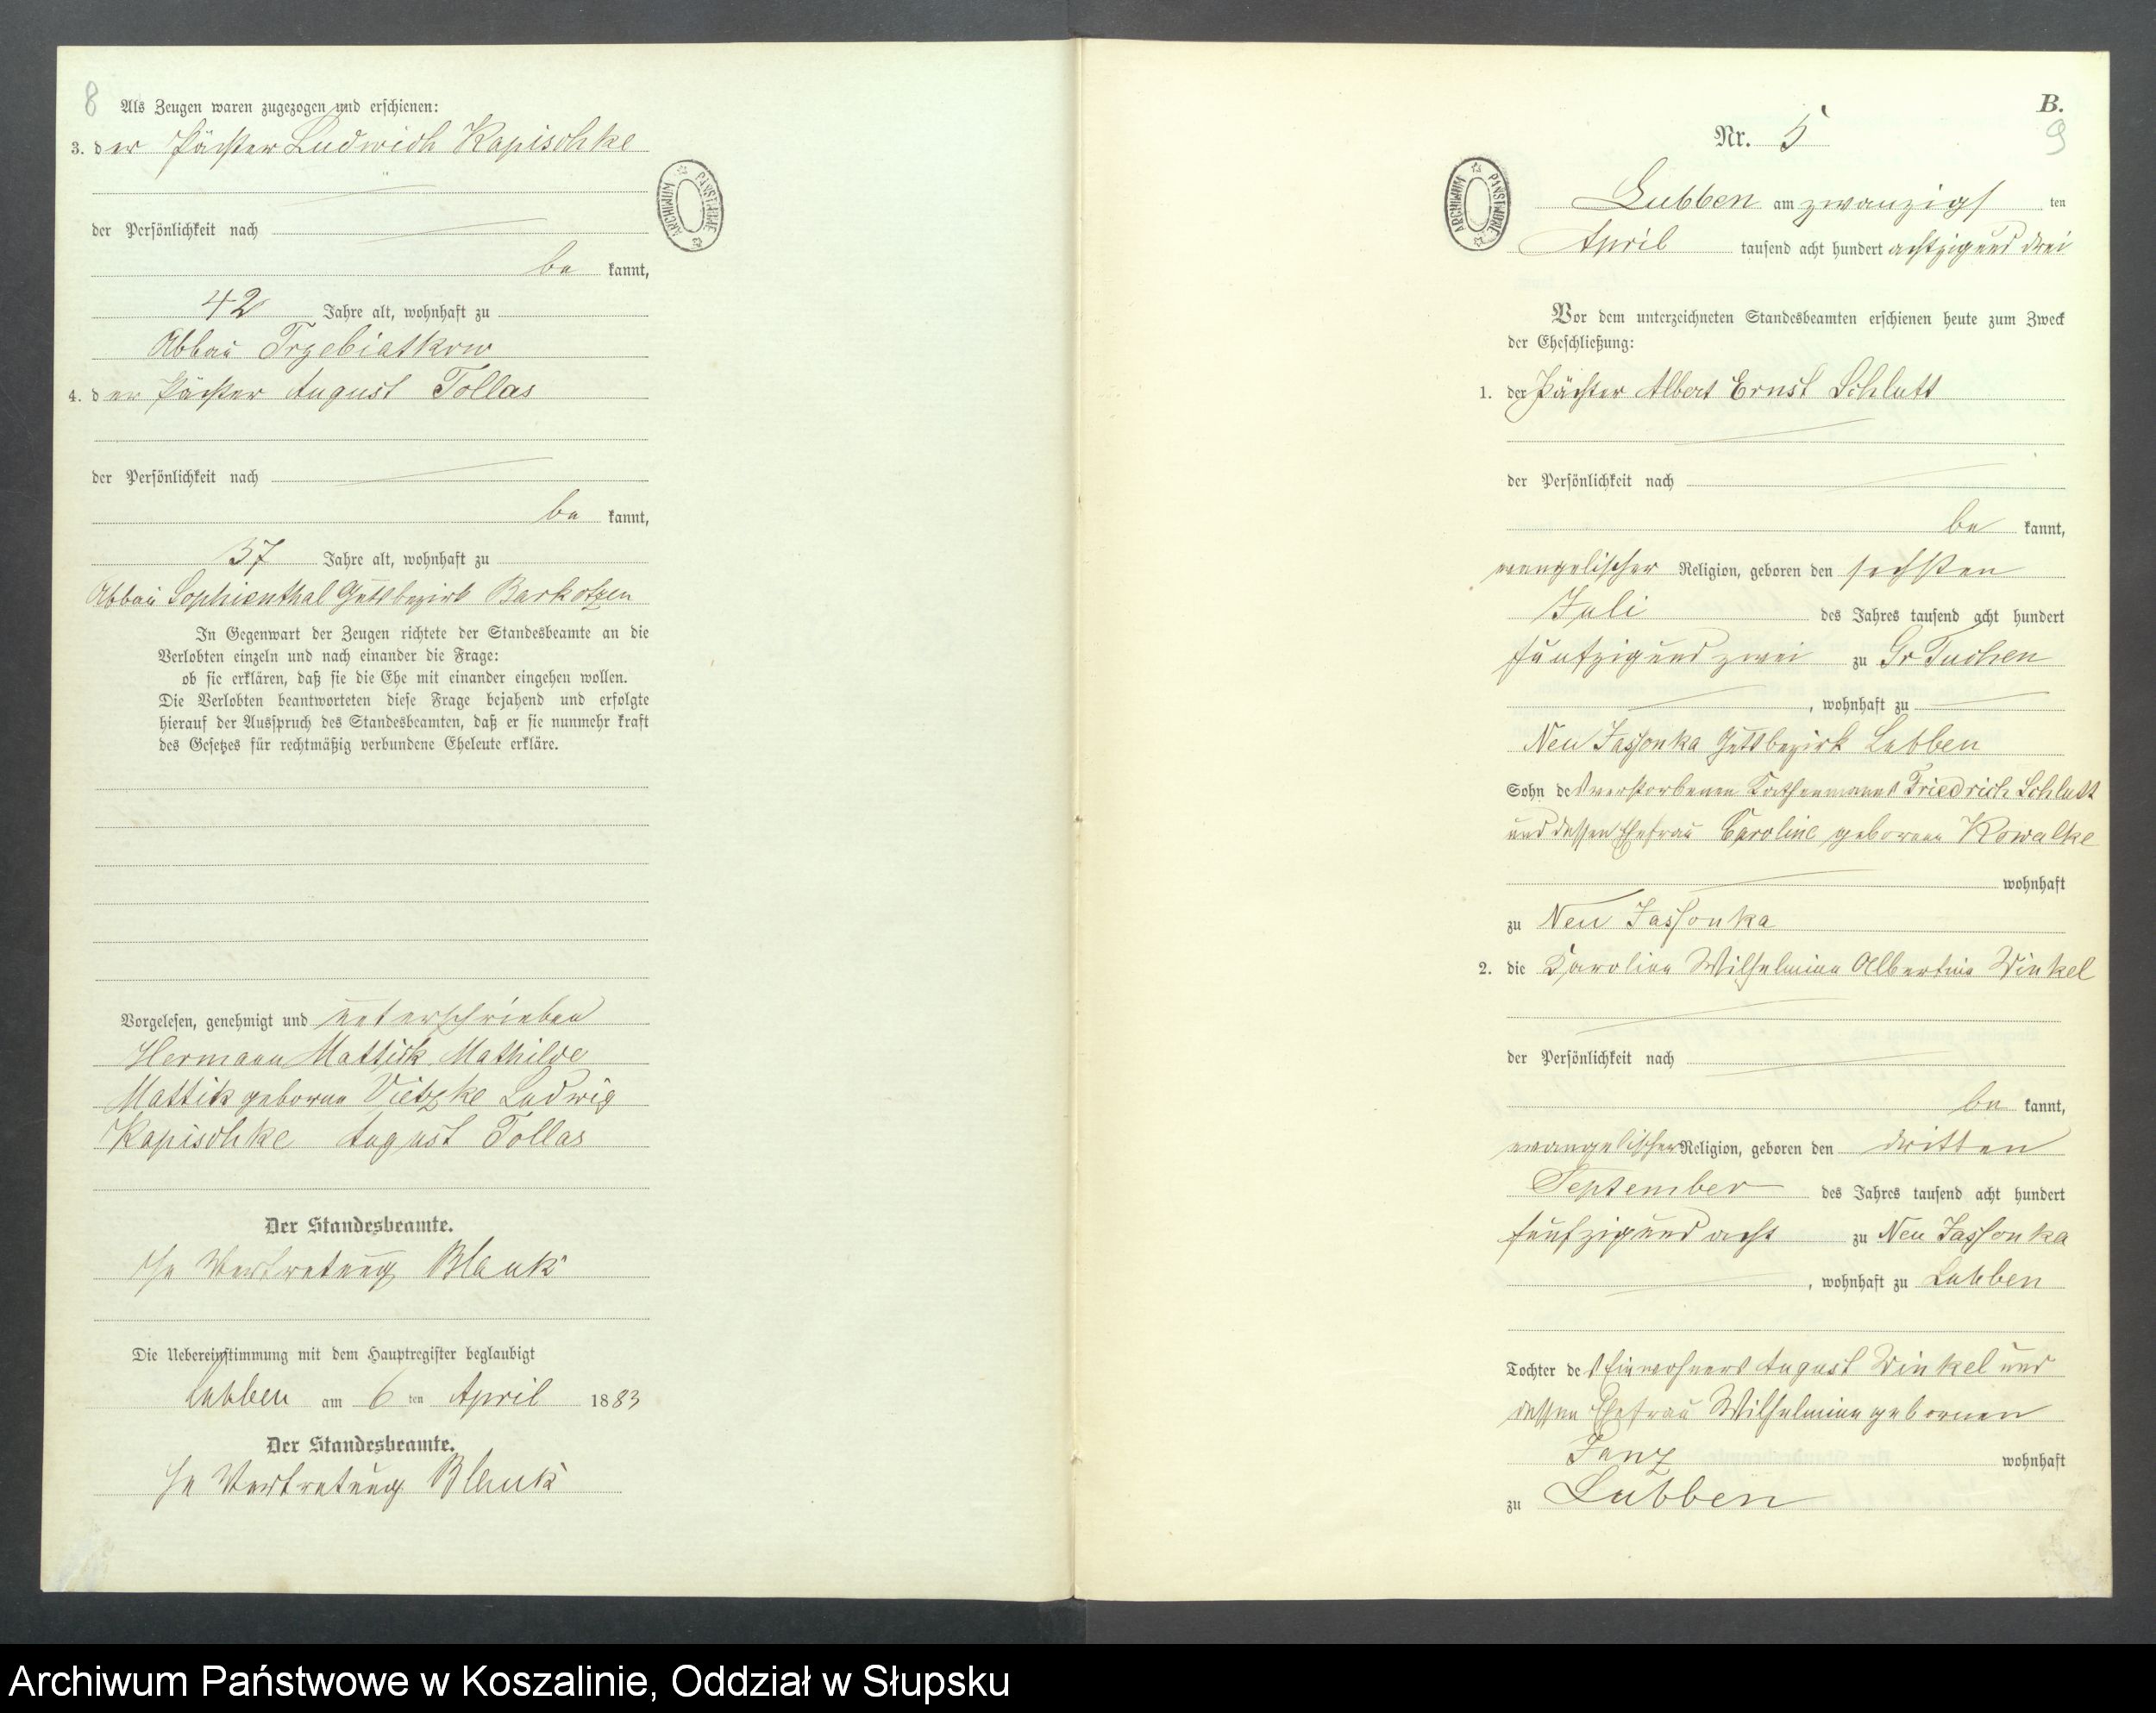 8
Als Zeugen waren zugezogen und erschienen:
3. der Pächter Ludwich Kapischke
der Persönlichkeit nach
be kannt,
42 Jahre alt, wohnhaft zu
Abbau Trzebiatkow
4. der Pächter August Tollas
der Persönlichkeit nach
be kannt,
37 Jahre alt, wohnhaft zu
Abbau Sophienthal Gutsbezirk Barkotzen
In Gegenwart der Zeugen richtete der Standesbeamte an die
Verlobten einzeln und nach einander die Frage:
ob sie erklären, daß sie die Ehe mit einander eingehen wollen.
Die Verlobten beantworteten diese Frage bejahend und erfolgte
hierauf der Ausspruch des Standesbeamten, daß er sie nunmehr kraft
des Gesetzes für rechtmäßig verbundene Eheleute erkläre.
Vorgelesen, genehmigt und unterschrieben
Hermann Mattick Mathilde
Mattik geborne Vietzke Ludwig
Kapischke August Tollas
Der Standesbeamte.
In Vertretung Blank
Die Uebereinstimmung mit dem Hauptregister beglaubigt
Lubben am 6 ten April 1883
Der Standesbeamte.
In Vertretung Blank
ARCHIWUM PAŃSTWOWE
B.
9
Nr. 5
ARCHIWUM PAŃSTWOWE
Lubben am zwanzigs ten
April tausend acht hundert achtzig und drei
Vor dem unterzeichneten Standesbeamten erschienen heute zum Zweck
der Eheschließung:
1. der Pächter Albert Ernst Schlutt
der Persönlichkeit nach
be kannt,
evangelischer Religion, geboren den sechsten
Juli des Jahres tausend acht hundert
fünfzig und zwei zu Gr Tuchen
, wohnhaft zu
Neu Jassonka Gutsbezirk Lubben
Sohn des verstorbenen Kathenmanns Friedrich Schlutt
und dessen Ehefrau Caroline geborenen Kowalke
wohnhaft
zu Neu Jassonka
2. die Karoline Wilhelmine Albertine Winkel
der Persönlichkeit nach
be kannt,
evangelischer Religion, geboren den dritten
September des Jahres tausend acht hundert
fünfzig und acht zu Neu Jassonka
, wohnhaft zu Lubben
Tochter des Einwohners August Winkel und
dessen Ehefrau Wilhelmine gebornen
Janz wohnhaft
zu Lubben
Archiwum Państwowe w Koszalinie, Oddział w Słupsku